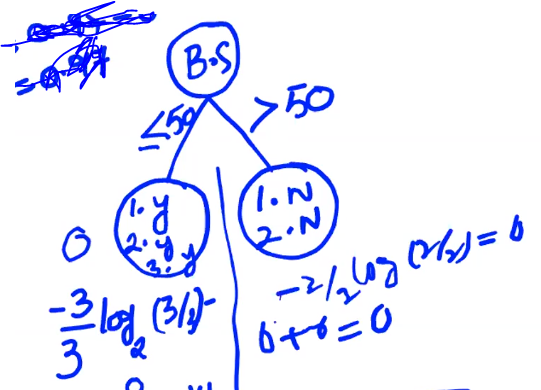 B.S
≤50
>50
1. y
2. y
3. y
1. N
2. N
0
-3/3 log2 (3/3)-
-2/2 log (2/2) = 0
0+0=0